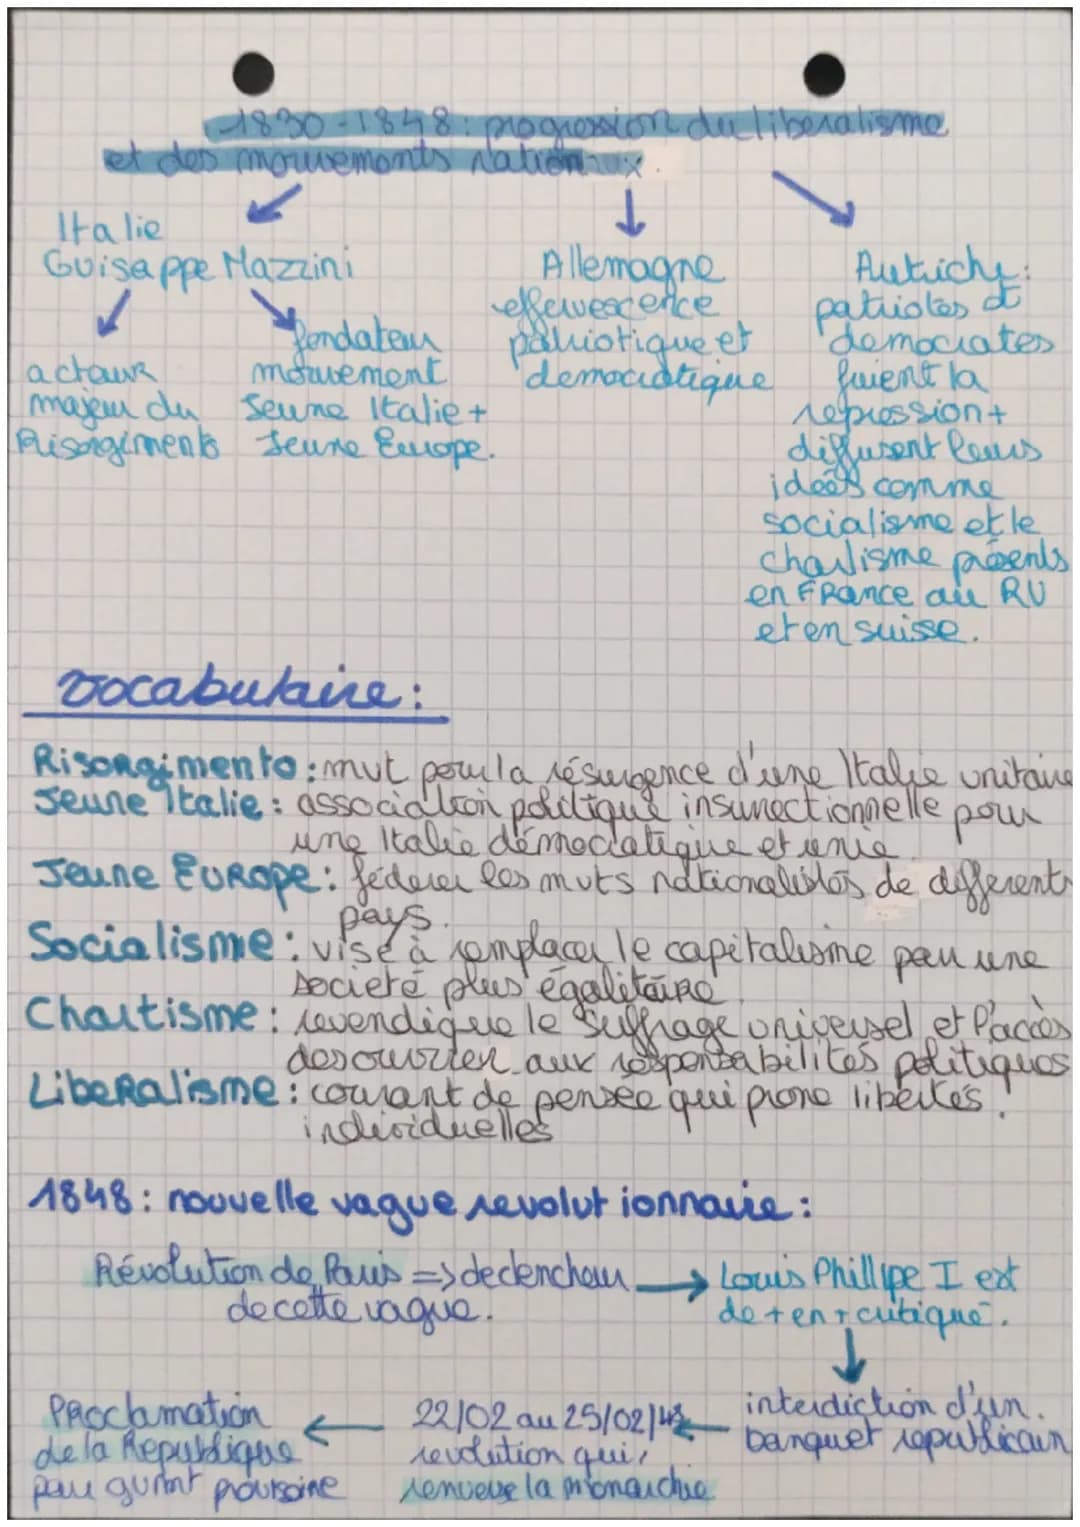 1830-1848: progression du liberalisme
et des mouvements nationaux.
Italie
Guiseppe Mazzini
acteur
majeur du
Risorgimento
fondateur
mouvement
Jeune Italie +
Jeune Europe.
Allemagne
effervescence
patriotique et
democratique
Autriche:
patriotes et
democrates
fuient la
repression +
diffusent leurs
idées comme
socialisme et le
chartisme présents
en FRance au RU
et en suisse.
vocabulaire:
Risorgimento: mvt pour la résurgence d'une Italie unitaire
Jeune Italie: association politique insurrectionnelle pour
une Italie démocratique et unie.
Jeune EUROpe: féderer les mvts nationalistes de differents
pays.
Socialisme: vise à remplacer le capitalisme par une
societé plus égalitaire.
Chartisme: revendique le suffrage universel et l'accès
des ouvrier aux responsabilités politiques
LibeRalisme: courant de pensée qui prone libertés
individuelles
1848: nouvelle vague revolutionnaire:
Révolution de Paris => declencheur
de cette vague.
Louis Phillipe I est
de + en + critiqué.
interdiction d'un
banquet republicain
22/02 au 25/02/48
revolution qui
renverse la monarchie
PRoclamation
de la Republique
par gvrmt provisoire